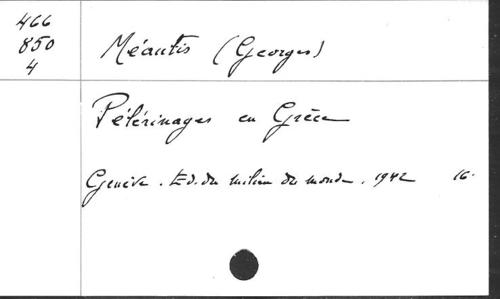 466
850
4
Méautis (Georges)
Pélérinages en Grèce
Genève. Ed. du milieu du monde. 1942 16.